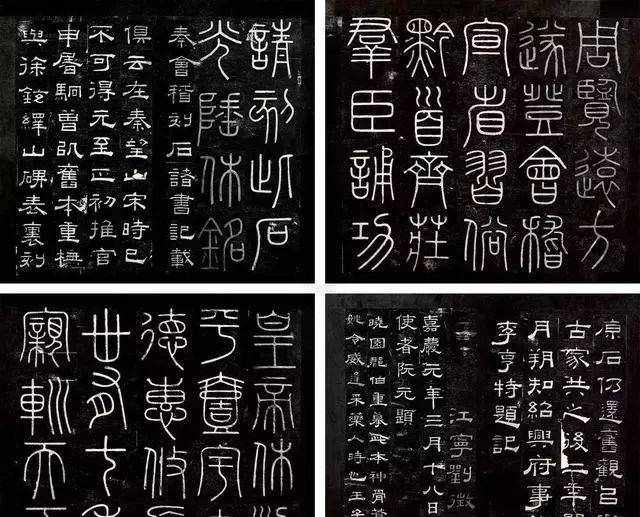 請刻此石
光陲休銘
秦會稽刻石諸書記載
俱云在秦望山宋時已
不可得元至正初推官
申屠駉曾以舊本重橅
與徐鉉繹山碑表裏刻
周覽遠方
遂登會稽
宣省習俗
黔首齊莊
羣臣誦功
皇帝休
平壹宇
德惠攸
卅有七
親巡天
原石仍還舊觀呂
古家共之後二年
月朔知紹興府事
李亨特題記
江寧劉徵
嘉慶元年三月十八日
使者阮元題
曉園龍伯重摹此本神骨
姚令威逢采藥人時也王